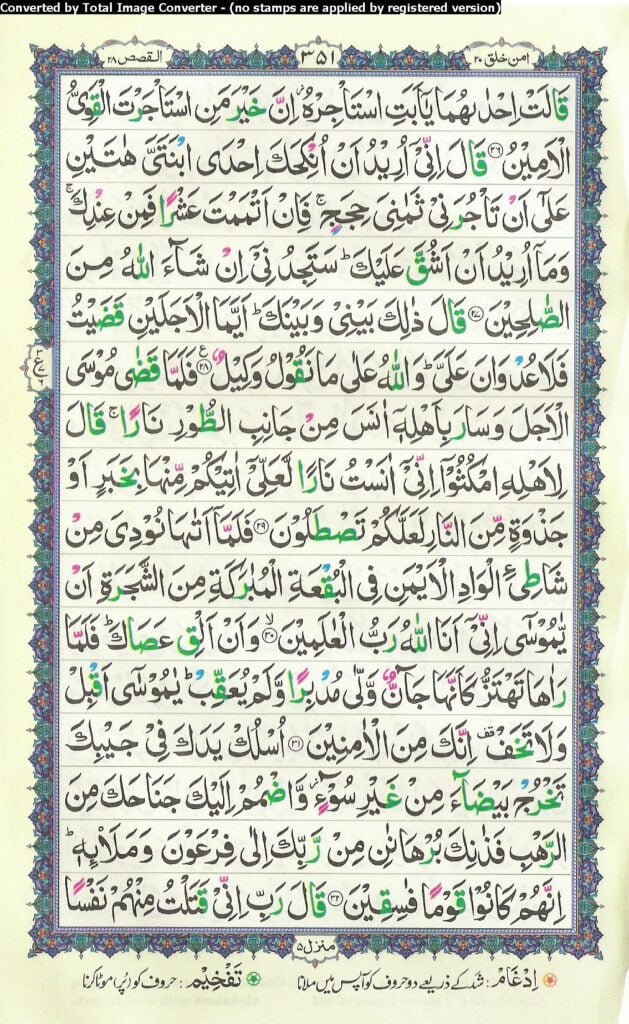 Converted by Total Image Converter - (no stamps are applied by registered version)
امن خلق ٢٠ ٣٥١ القصص ٢٨
قَالَتْ اِحْدٰىهُمَا يٰۤاَبَتِ اسْتَاْجِرْهُ ؗ اِنَّ خَيْرَ مَنِ اسْتَاْجَرْتَ الْقَوِيُّ
الْاَمِيْنُ ﴿٢٦﴾ قَالَ اِنِّيْۤ اُرِيْدُ اَنْ اُنْكِحَكَ اِحْدَى ابْنَتَيَّ هٰتَيْنِ
عَلٰۤى اَنْ تَاْجُرَنِيْ ثَمٰنِيَ حِجَجٍ ۚ فَاِنْ اَتْمَمْتَ عَشْرًا فَمِنْ عِنْدِكَ ۚ
وَمَاۤ اُرِيْدُ اَنْ اَشُقَّ عَلَيْكَ ؕ سَتَجِدُنِيْۤ اِنْ شَآءَ اللّٰهُ مِنَ
الصّٰلِحِيْنَ ﴿٢٧﴾ قَالَ ذٰلِكَ بَيْنِيْ وَبَيْنَكَ ؕ اَيَّمَا الْاَجَلَيْنِ قَضَيْتُ
فَلَا عُدْوَانَ عَلَيَّ ؕ وَاللّٰهُ عَلٰى مَا نَقُوْلُ وَكِيْلٌ ﴿٢٨﴾ ع فَلَمَّا قَضٰى مُوْسَى
الْاَجَلَ وَسَارَ بِاَهْلِهٖۤ اٰنَسَ مِنْ جَانِبِ الطُّوْرِ نَارًا ۚ قَالَ
لِاَهْلِهِ امْكُثُوْۤا اِنِّيْۤ اٰنَسْتُ نَارًا لَّعَلِّيْۤ اٰتِيْكُمْ مِّنْهَا بِخَبَرٍ اَوْ
جَذْوَةٍ مِّنَ النَّارِ لَعَلَّكُمْ تَصْطَلُوْنَ ﴿٢٩﴾ فَلَمَّاۤ اَتٰىهَا نُوْدِيَ مِنْ
شَاطِئِ الْوَادِ الْاَيْمَنِ فِي الْبُقْعَةِ الْمُبٰرَكَةِ مِنَ الشَّجَرَةِ اَنْ
يّٰمُوْسٰۤى اِنِّيْۤ اَنَا اللّٰهُ رَبُّ الْعٰلَمِيْنَ ﴿٣٠﴾ ۙ وَاَنْ اَلْقِ عَصَاكَ ؕ فَلَمَّا
رَاٰهَا تَهْتَزُّ كَاَنَّهَا جَآنٌّ وَّلّٰى مُدْبِرًا وَّلَمْ يُعَقِّبْ ؕ يٰمُوْسٰۤى اَقْبِلْ
وَلَا تَخَفْ ۫ اِنَّكَ مِنَ الْاٰمِنِيْنَ ﴿٣١﴾ اُسْلُكْ يَدَكَ فِيْ جَيْبِكَ
تَخْرُجْ بَيْضَآءَ مِنْ غَيْرِ سُوْٓءٍ ؗ وَّاضْمُمْ اِلَيْكَ جَنَاحَكَ مِنَ
الرَّهْبِ فَذٰنِكَ بُرْهَانٰنِ مِنْ رَّبِّكَ اِلٰى فِرْعَوْنَ وَمَلَا۟ىِٕهٖ ؕ
اِنَّهُمْ كَانُوْا قَوْمًا فٰسِقِيْنَ ﴿٣٢﴾ قَالَ رَبِّ اِنِّيْ قَتَلْتُ مِنْهُمْ نَفْسًا
منزل ٥
اِدْغَام: شد کے ذریعے دو حروف کو آپس میں ملانا تَفْخِیْم: حروف کو (پُر) موٹا کرنا